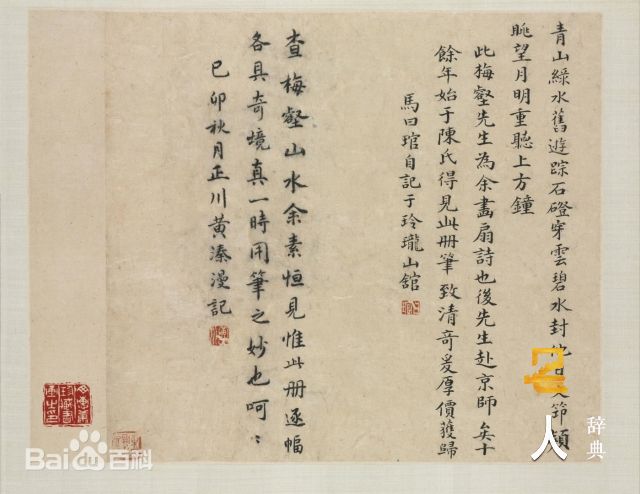 青山綠水舊遊踪石磴穿雲碧水封他日
節頭
眺望月明重聽上方鐘
此梅壑先生為余畫扇詩也後先生赴京師矣十
餘年始于陳氏得見此册筆致清奇爰厚價獲歸
馬曰琯自記于玲瓏山舘
查梅壑山水余素恒見惟此册逐幅
各具奇境真一時用筆之妙也呵〻
己卯秋月正川黃溱漫記
Bai百科
人
辞典